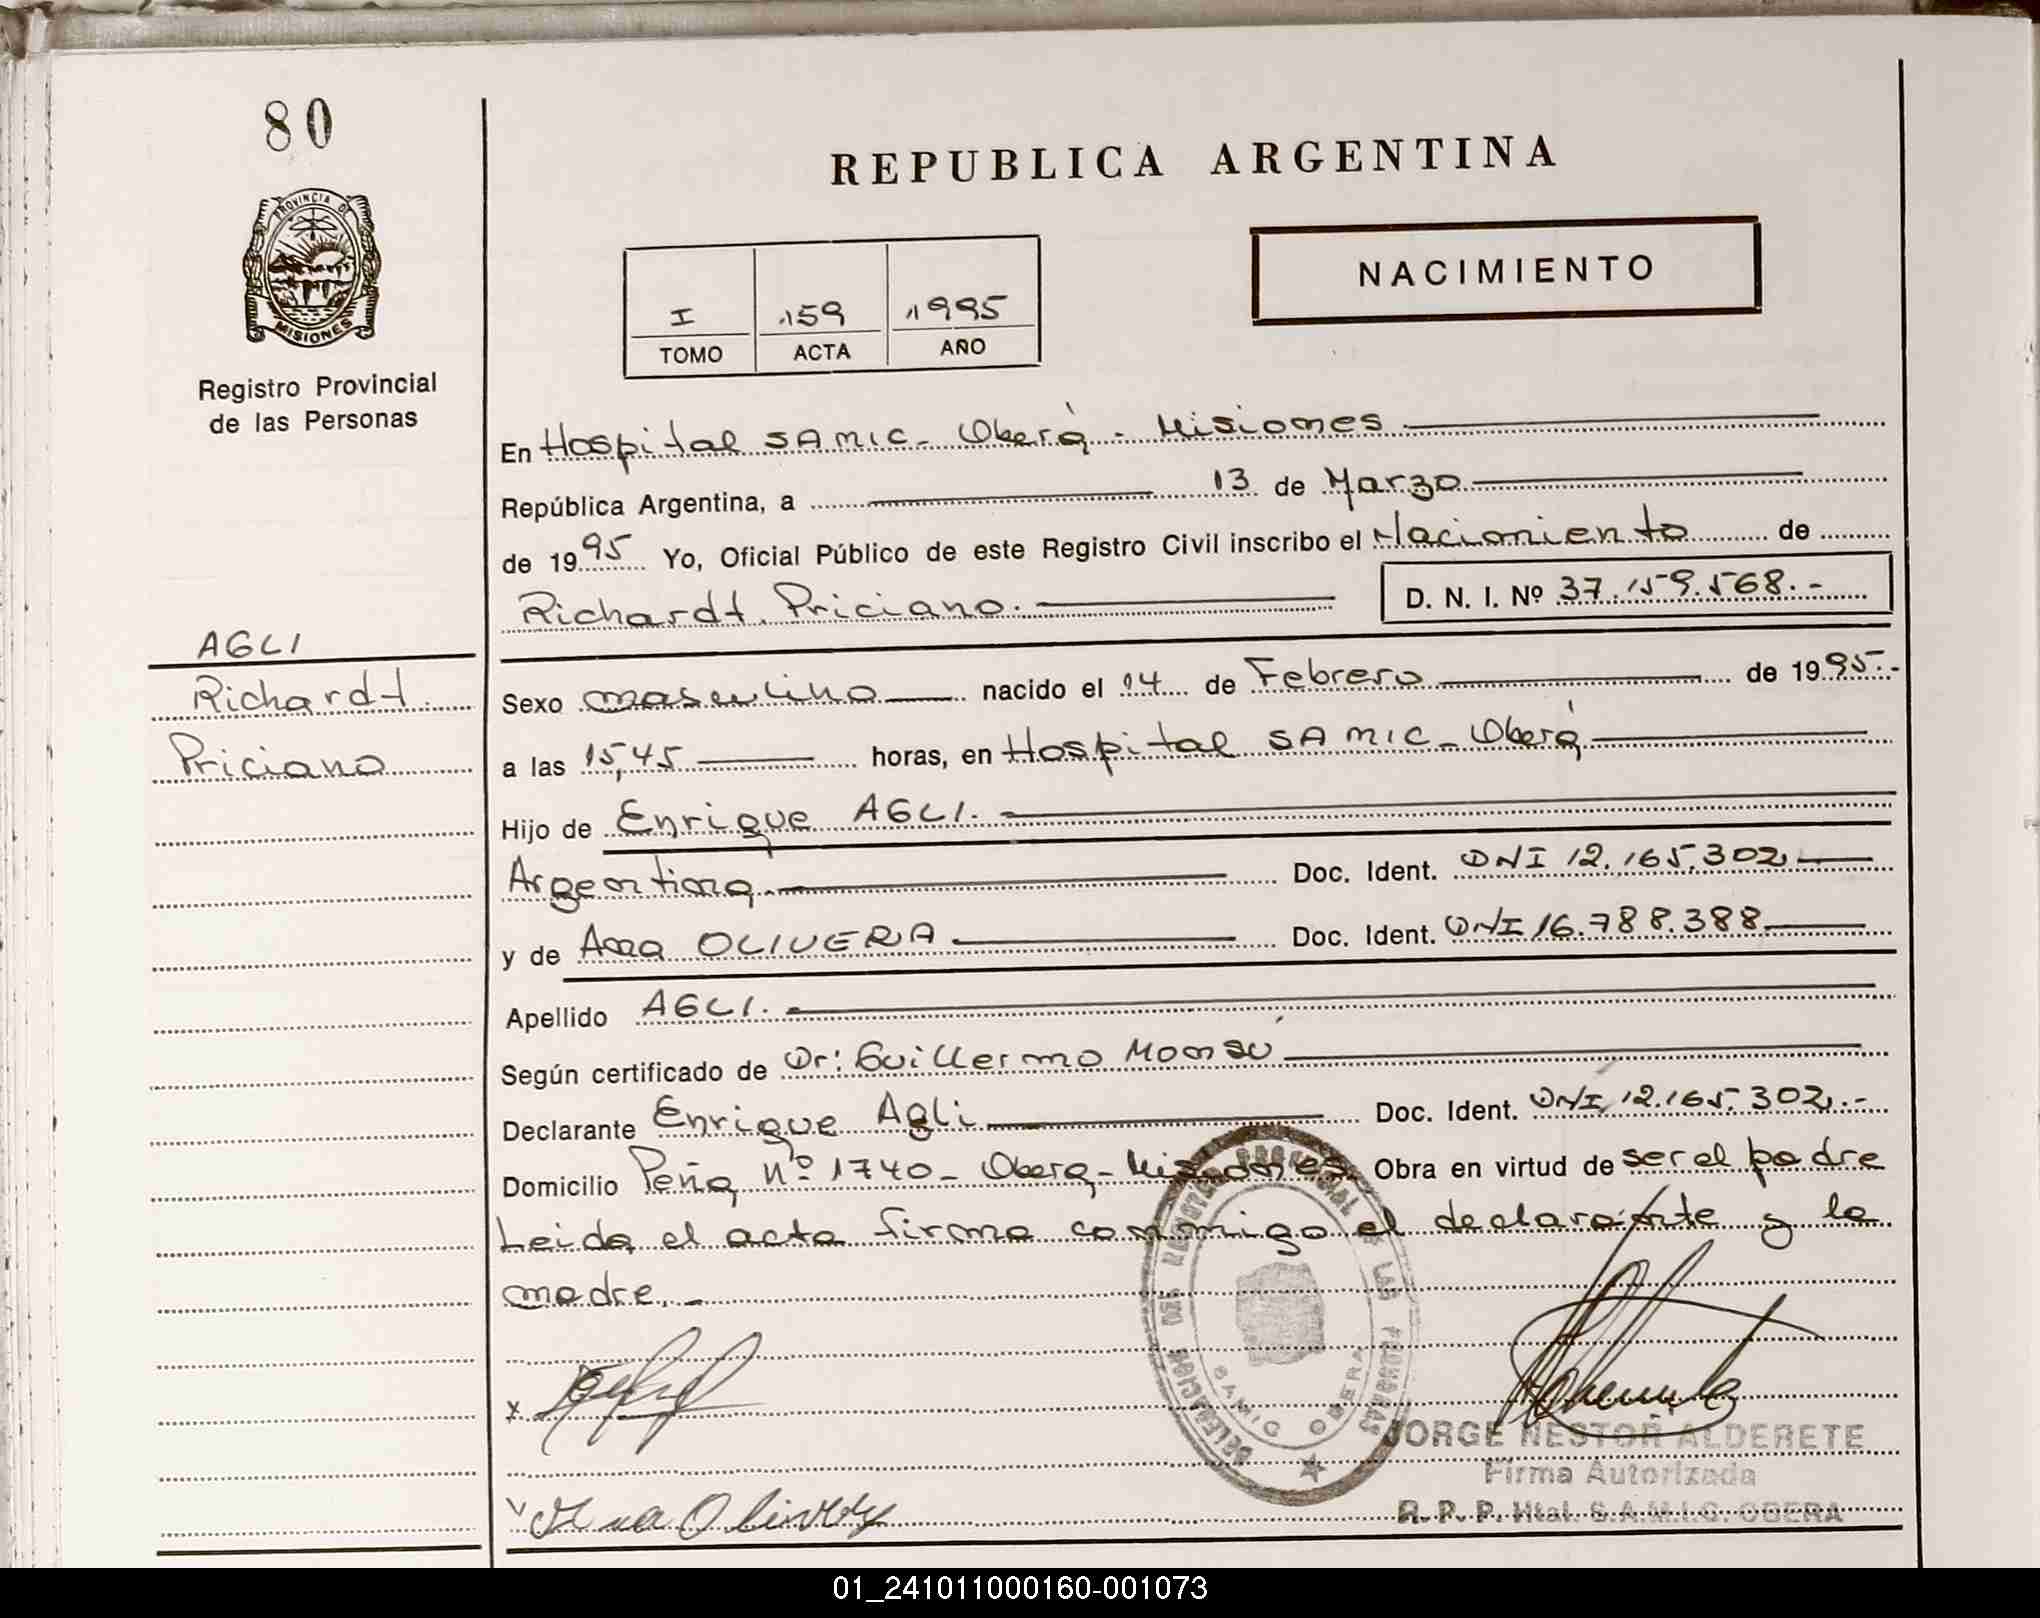 80
PROVINCIA DE
MISIONES
Registro Provincial
de las Personas
AGLI
Richardt
Priciano
REPUBLICA ARGENTINA
NACIMIENTO
I 159 1995
TOMO ACTA AÑO
En Hospital SAMIC - Oberá - Misiones
República Argentina, a 13 de Marzo
de 1995 Yo, Oficial Público de este Registro Civil inscribo el Nacimiento de
Richardt Priciano. D. N. I. Nº 37.159.568.-
Sexo masculino nacido el 14 de Febrero de 1995.-
a las 15,45 horas, en Hospital SAMIC - Oberá
Hijo de Enrique AGLI.
Argentina Doc. Ident. DNI 12.165.302
y de Ana OLIVERA Doc. Ident. DNI 16.788.388
Apellido AGLI.
Según certificado de Dr: Guillermo
Declarante Enrique Agli Doc. Ident. DNI 12.165.302.-
Domicilio Peña Nº 1740 - Oberá - Misiones Obra en virtud de ser el padre
Leida el acta firma conmigo el declarante y la
madre.-
DELEGACION DEL REGISTRO PROVINCIAL DE LAS PERSONAS
SAMIC OBERA
x
Ana
JORGE NESTOR ALDERETE
Firma Autorizada
R. P. P. Htal. S.A.M.I.C. OBERA
01_241011000160-001073